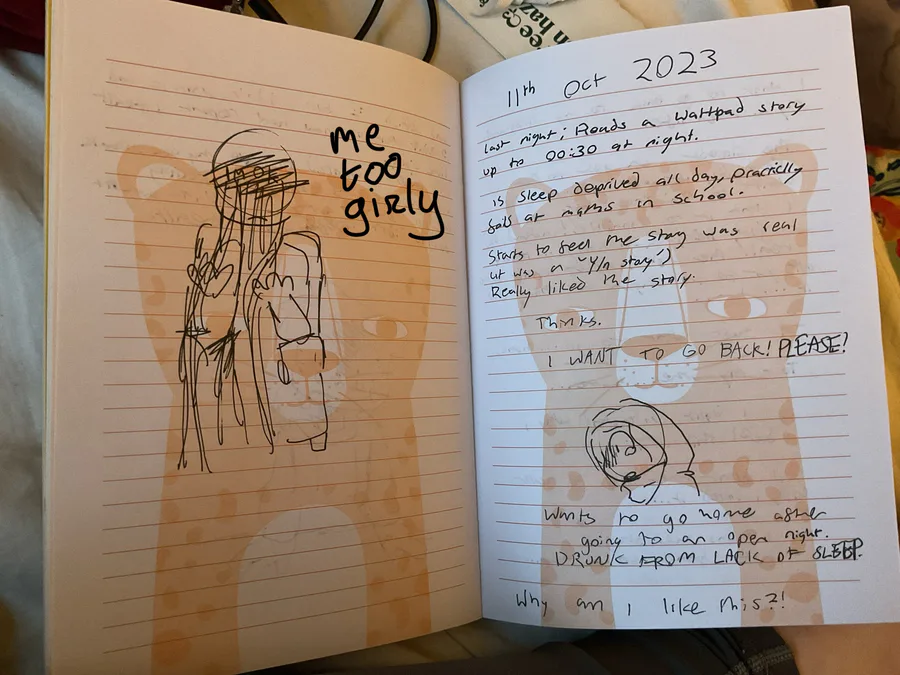 me
too
girly
11th Oct 2023
last night; Reads a Wattpad story
up to 00:30 at night.
is sleep deprived all day, practiclly
fails at maths in school.
Starts to feel the story was real
(it was a "Y/n story")
Really liked the story.
Thinks.
I WANT TO GO BACK! PLEASE!
Wants to go home after
going to an open night.
DRUNK FROM LACK OF SLEEP.
Why am I like this?!